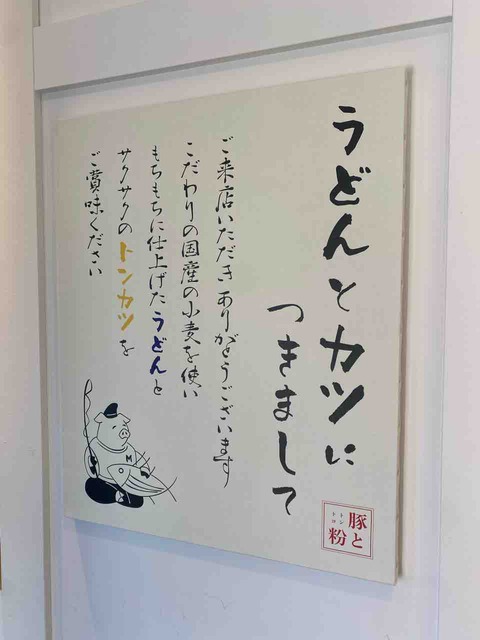 うどんとカツに
つきまして
ご来店いただきありがとうございます
こだわりの国産の小麦を使い
もちもちに仕上げたうどんと
サクサクのトンカツを
ご賞味ください
M
豚と
トン
トコ
粉